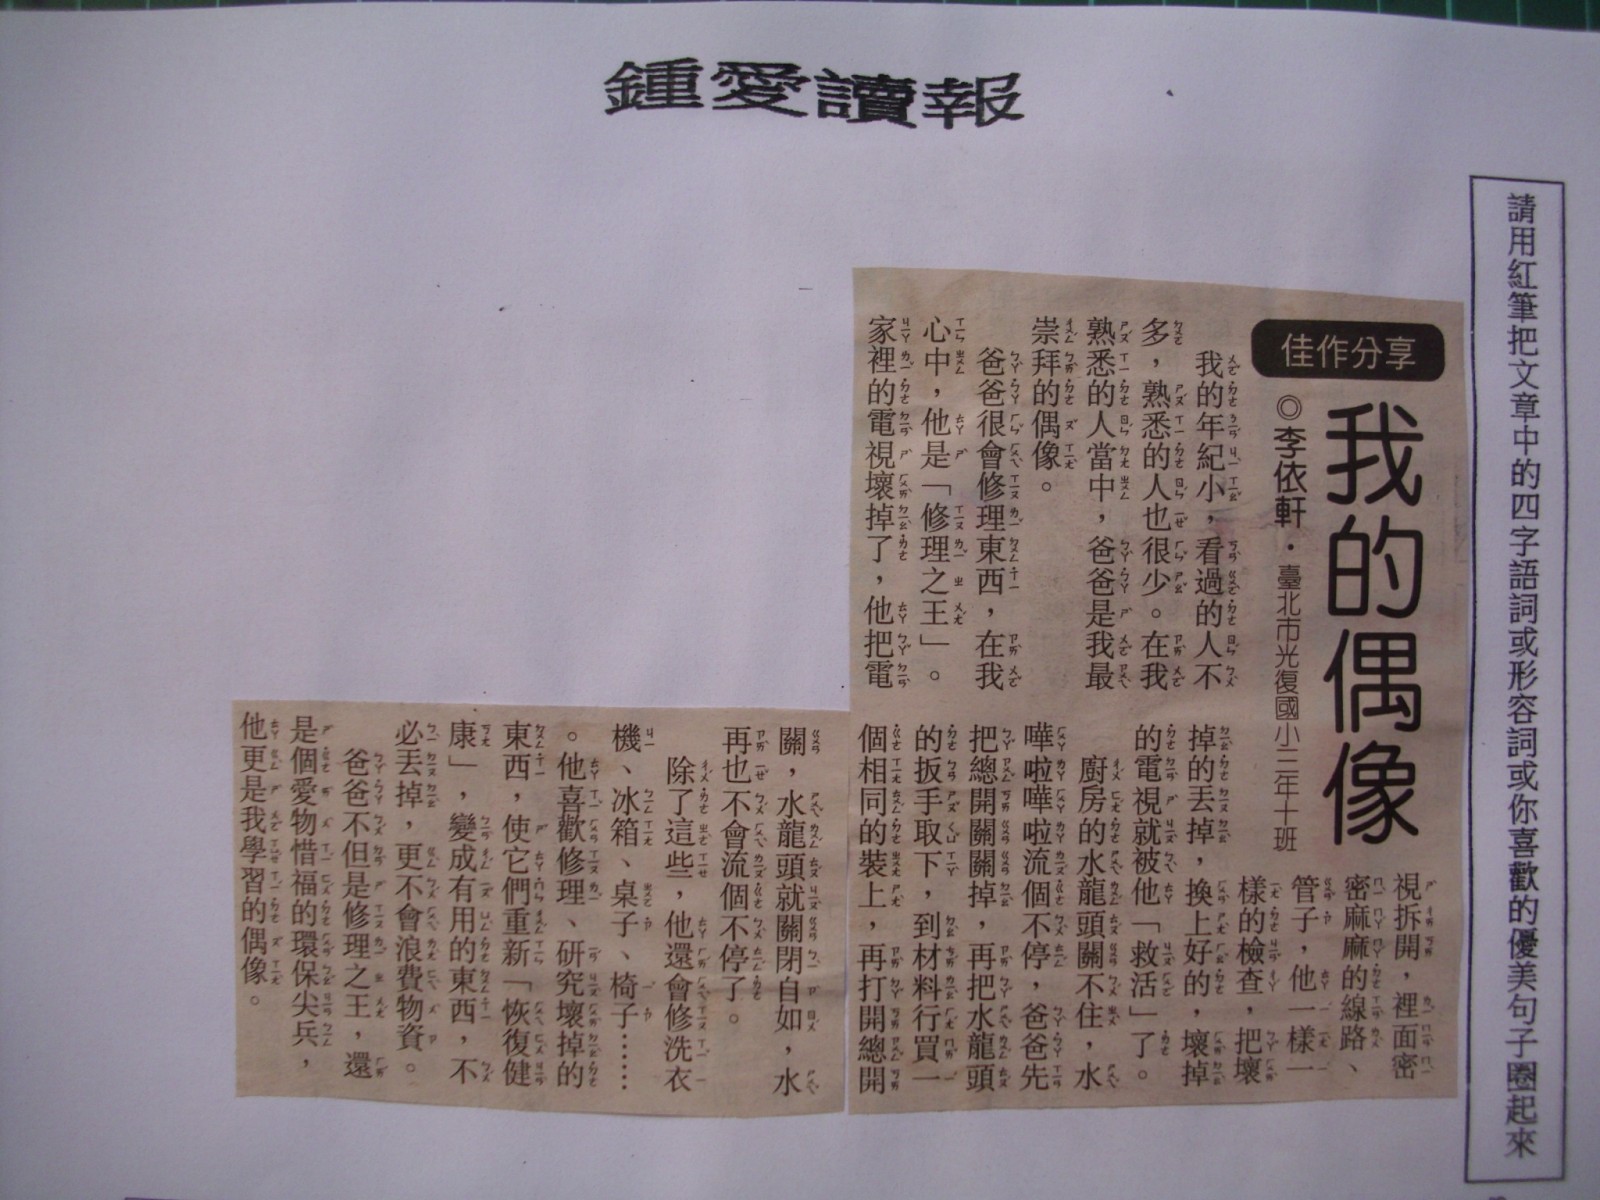 鍾愛讀報
請用紅筆把文章中的四字語詞或形容詞或你喜歡的優美句子圈起來
佳作分享
我的偶像
◎李依軒・臺北市光復國小三年十班
我的年紀小，看過的人不
多，熟悉的人也很少。在我
熟悉的人當中，爸爸是我最
崇拜的偶像。
爸爸很會修理東西，在我
心中，他是「修理之王」。
家裡的電視壞掉了，他把電
視拆開，裡面密
密麻麻的線路、
管子，他一樣一
樣的檢查，把壞
掉的丟掉，換上好的，壞掉
的電視就被他「救活」了。
廚房的水龍頭關不住，水
嘩啦嘩啦流個不停，爸爸先
把總開關關掉，再把水龍頭
的扳手取下，到材料行買一
個相同的裝上，再打開總開
關，水龍頭就關閉自如，水
再也不會流個不停了。
除了這些，他還會修洗衣
機、冰箱、桌子、椅子……
。他喜歡修理、研究壞掉的
東西，使它們重新「恢復健
康」，變成有用的東西，不
必丟掉，更不會浪費物資。
爸爸不但是修理之王，還
是個愛物惜福的環保尖兵，
他更是我學習的偶像。